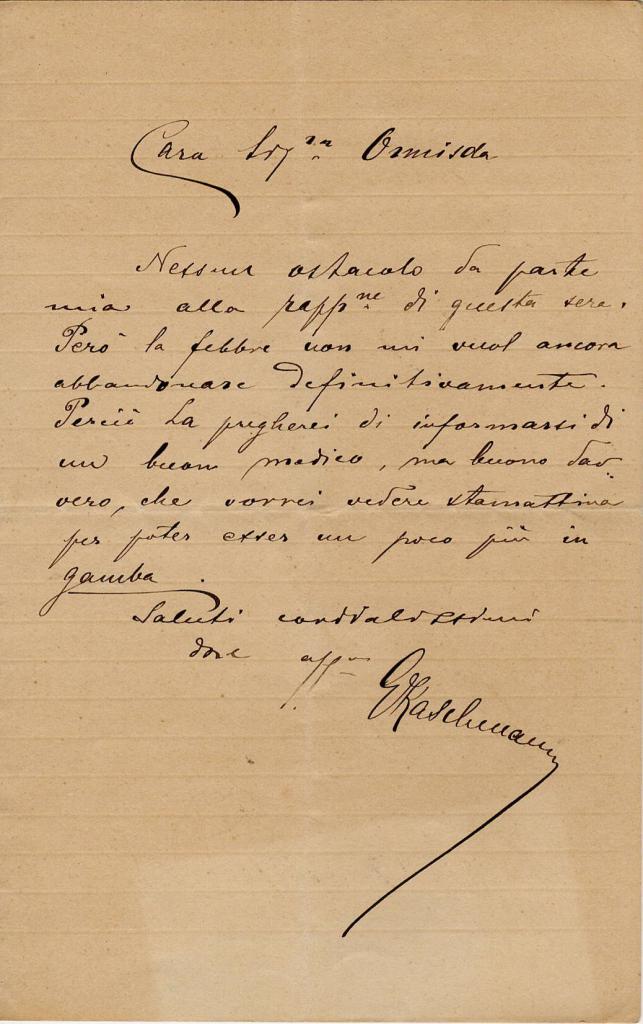 Cara Sigra Ormisda
Nessun ostacolo da parte
mia alla rappne di questa sera.
Però la febbre non mi vuol ancora
abbandonare definitivamente.
Perciò La pregherei di informarsi di
un buon medico, ma buono dav-
vero, che vorrei vedere stamattina
per poter esser un poco più in
gamba.
Saluti cordialissimi
affmo
GKaschmann